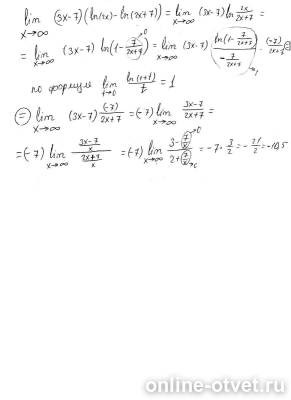 lim x→∞ (3x-7)(ln(2x)-ln(2x+7)) = lim x→∞ (3x-7) ln 2x/(2x+7) =
= lim x→∞ (3x-7) ln(1- 7/(2x+7)) →0 = lim x→∞ (3x-7) ln(1- 7/(2x+7))/(- 7/(2x+7)) →1 · (-7)/(2x+7) =
по формуле lim t→0 ln(1+t)/t = 1
= lim x→∞ (3x-7) (-7)/(2x+7) = (-7) lim x→∞ (3x-7)/(2x+7) =
= (-7) lim x→∞ ((3x-7)/x)/((2x+7)/x) = (-7) lim x→∞ (3- 7/x →0)/(2+ 7/x →0) = -7· 3/2 = - 21/2 = -10,5
online-otvet.ru